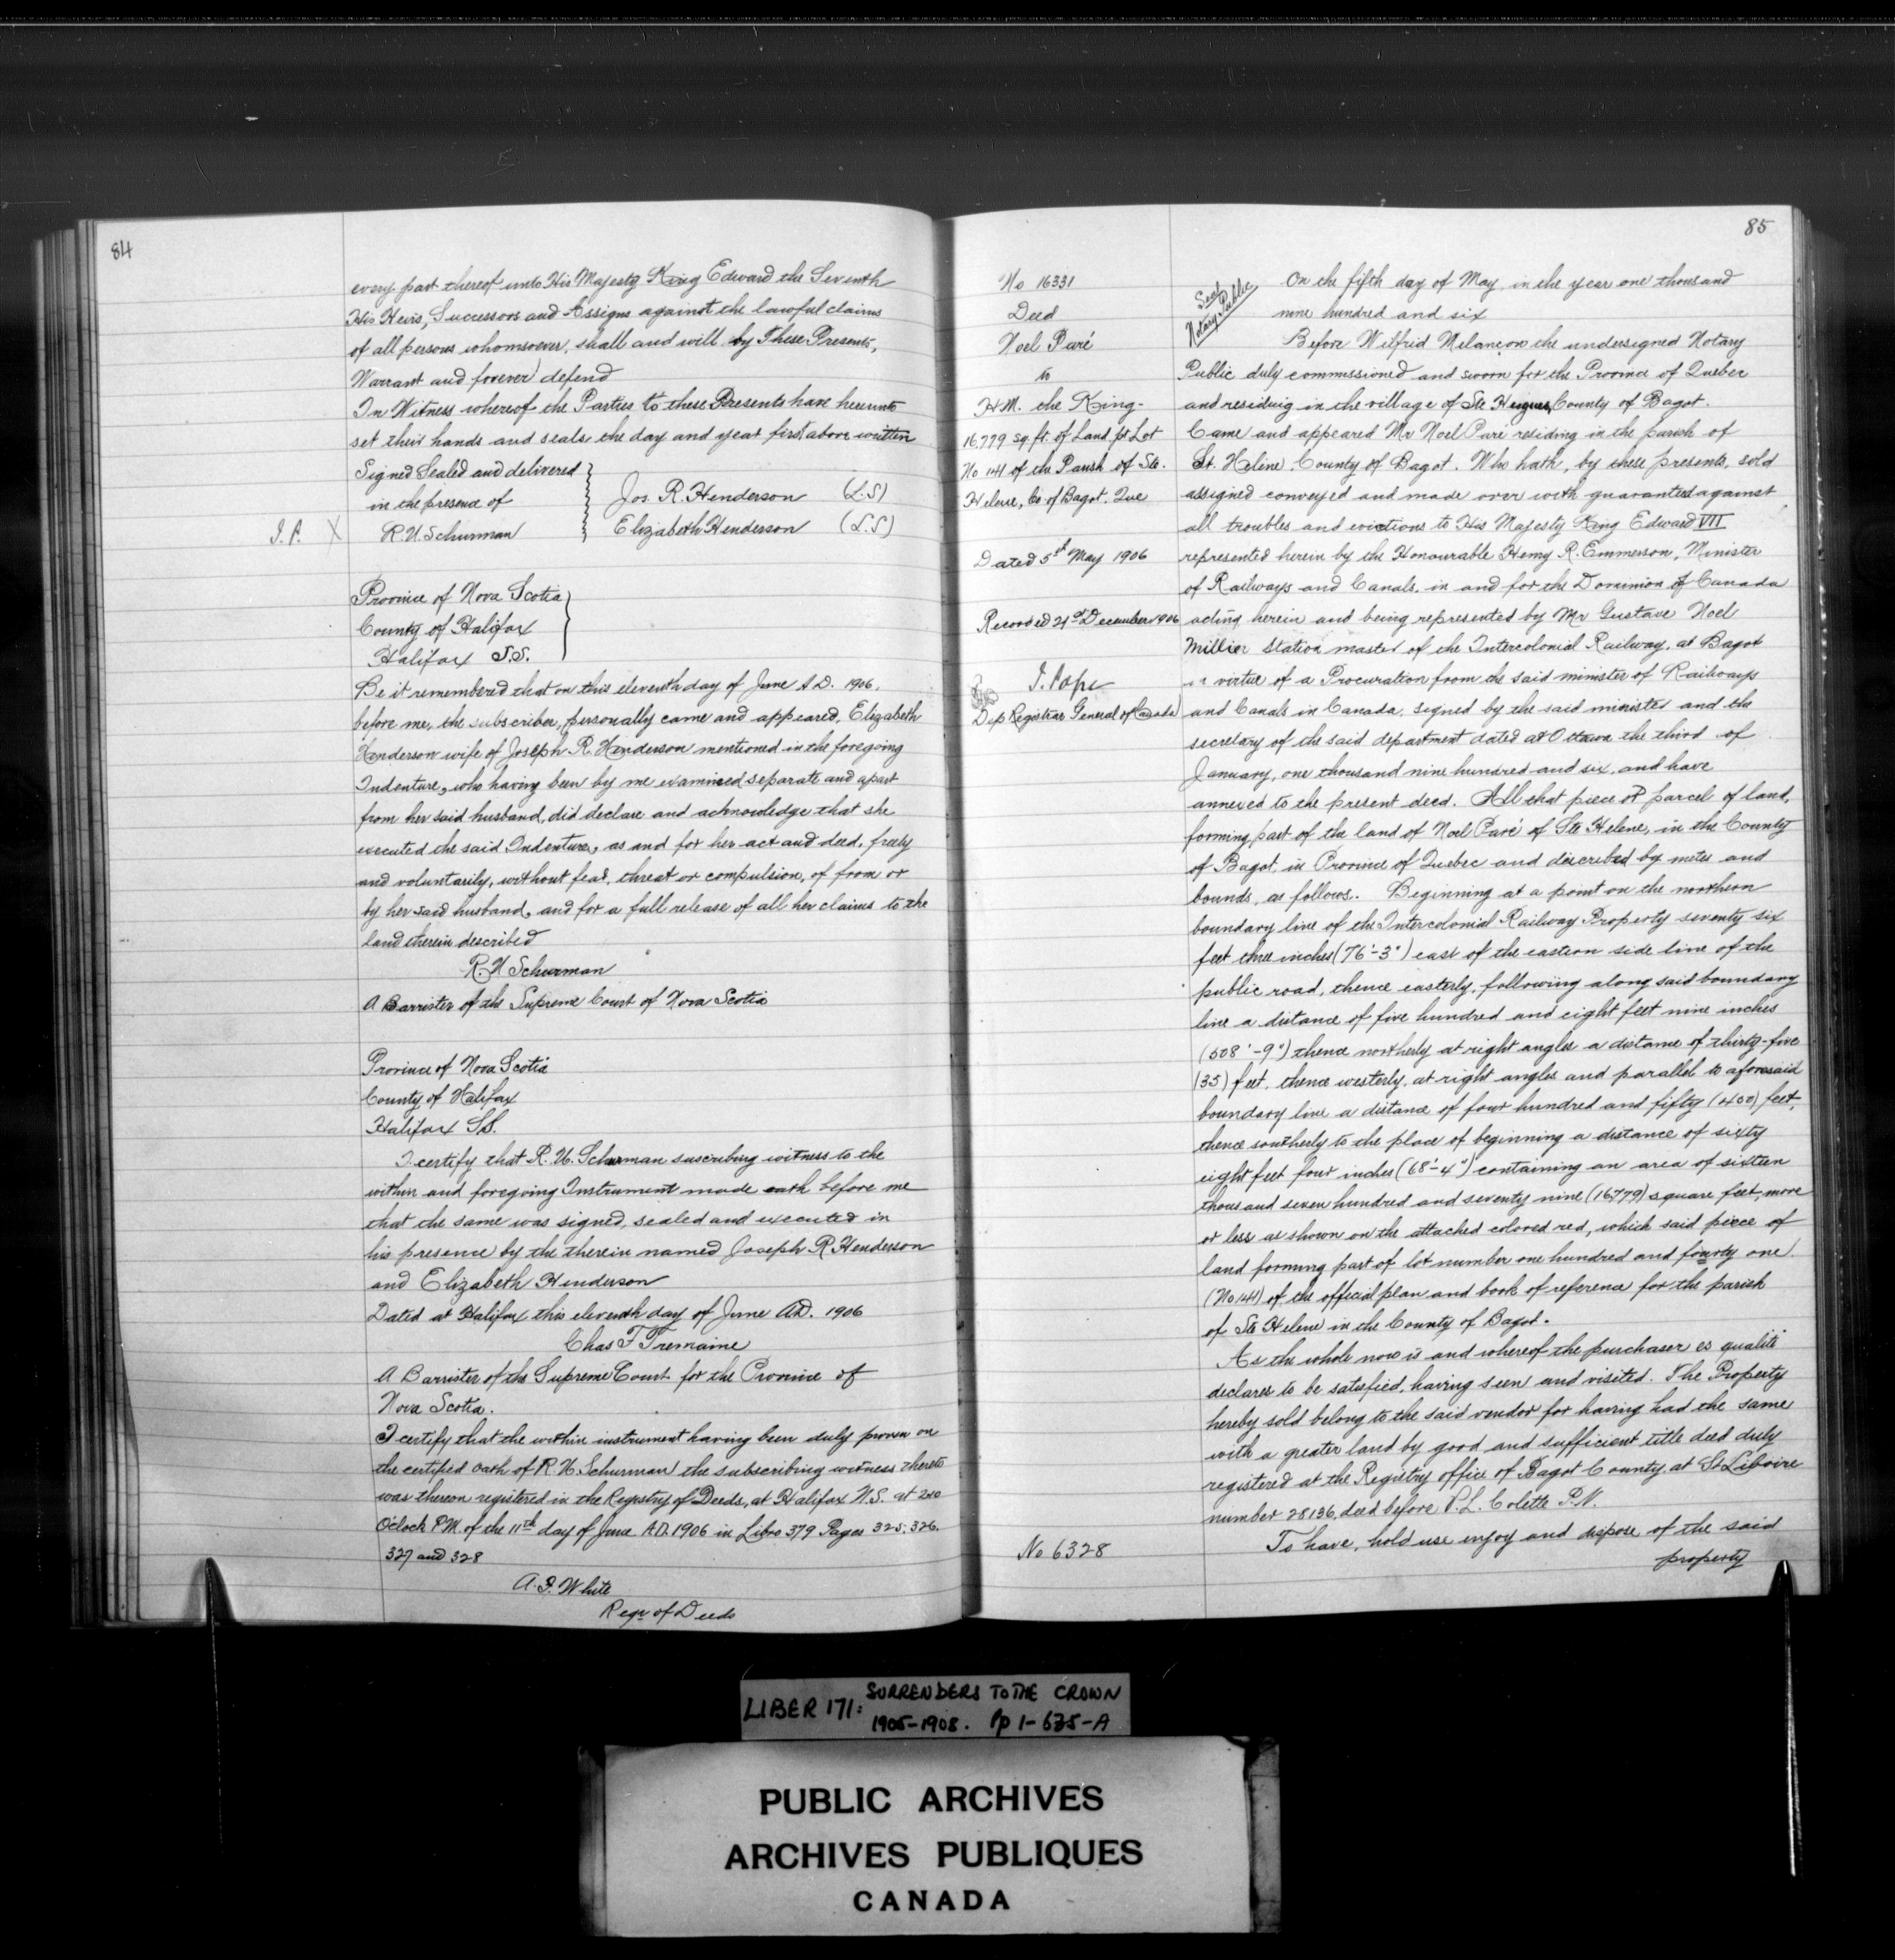 84
every part thereof unto His Majesty King Edward the Seventh
His Heirs, Successors and Assigns against the lawful claims
of all persons whomsoever, shall and will by These Presents,
Warrant and forever defend
In Witness whereof the Parties to these Presents have hereunto
set their hands and seals the day and year first above written
Signed Sealed and delivered
in the presence of
Jos. R. Henderson (L.S)
R. U. Schurman
Elizabeth Henderson (L.S)
Province of Nova Scotia
County of Halifax
Halifax S.S.
Be it remembered that on this eleventh day of June A.D. 1906,
before me, the subscriber, personally came and appeared, Elizabeth
Henderson wife of Joseph R. Henderson mentioned in the foregoing
Indenture, who having been by me examined separate and apart
from her said husband, did declare and acknowledge that she
executed the said Indenture, as and for her act and deed, freely
and voluntarily, without fear, threat or compulsion, of from or
by her said husband, and for a full release of all her claims to the
land therein described
R. U Schurman
A Barrister of the Supreme Court of Nova Scotia
Province of Nova Scotia
County of Halifax
Halifax S.S.
I certify that R. U. Schurman suscribing witness to the
within and foregoing Instrument made oath before me
that the same was signed, sealed and executed in
his presence by the therein named Joseph R Henderson
and Elizabeth Henderson
Dated at Halifax this eleventh day of June A.D. 1906
Chas F Tremaine
A Barrister of the Supreme Court for the Province of
Nova Scotia.
I certify that the within instrument having been duly proven on
the certified oath of R. U. Schurman the subscribing witness thereto
was thereon registered in the Registry of Deeds, at Halifax N.S. at
O'clock P.M. of the 11th day of June A.D. 1906 in Libro 379 Pages 325, 326.
327 and 328
Regr of Deeds
85
No 16331
Deed
Noel Paré
to
H.M. the King
16.779 sq. ft. of Land pt Lot
No 141 of the Parish of Ste.
Helene, Co of Bagot. Que
Dated 5th May 1906
Recorded 21st December 1906
J. Pope
Dep Registrar General of Canada
No 6328
Seal
Notary Public
On the fifth day of May, in the year one thousand
nine hundred and six
Before Wilfrid Melançon the undersigned Notary
Public duly commissioned and sworn for the Province of Quebec
and residing in the village of Ste Hugues, County of Bagot.
Came and appeared Mr Noel Paré residing in the parish of
St. Heline, County of Bagot. Who hath, by these presents, sold
assigned conveyed and made over with guaranteed against
all troubles and evictions to His Majesty King Edward VII
represented herein by the Honourable Henry R. Emmerson, Minister
of Railways and Canals, in and for the Dominion of Canada
acting herein and being represented by Mr Gustave Noel
Millier Station master of the Intercolonial Railway, at Bagot
in virtue of a Procuration from the said minister of Railways
and Canals in Canada, signed by the said minister and the
secretary of the said department dated at Ottawa the third of
January, one thousand nine hundred and six, and have
annexed to the present deed. All that piece or parcel of land,
forming part of the land of Noel Paré of Ste Helene, in the County
of Bagot, in Province of Quebec and discribed by metes and
bounds, as follows. Beginning at a point on the northern
boundary line of the Intercolonial Railway Property seventy six
feet three inches (76'-3") east of the eastern side line of the
public road, thence easterly, following along said boundary
line a distance of five hundred and eight feet nine inches
(508'-9") thence northerly at right angles a distance of thirty-five
(35) feet, thence westerly, at right angles and parallel to aforesaid
boundary line a distance of four hundred and fifty (450) feet,
thence southerly to the place of beginning a distance of sixty
eight feet four inches (68'-4") containing an area of sixteen
thousand seven hundred and seventy nine (16779) square feet, more
or less as shown on the attached colored red, which said piece of
land forming part of lot number one hundred and fourty one
(No 141) of the official plan and book of reference for the parish
of Ste Helene in the County of Bagot.
As the whole now is and whereof the purchaser es qualité
declares to be satisfied, having seen and visited. The Property
hereby sold belong to the said vendor for having had the same
with a greater land by good and sufficient title deed duly
registered at the Registry office of Bagot County, at St Liboire
number 28136, deed before P. L. Colette P.N.
To have, hold use enjoy and dispose of the said
property
LIBER 171: SURRENDERS TO THE CROWN
1905-1908. Pp 1-635-A
PUBLIC ARCHIVES
ARCHIVES PUBLIQUES
CANADA